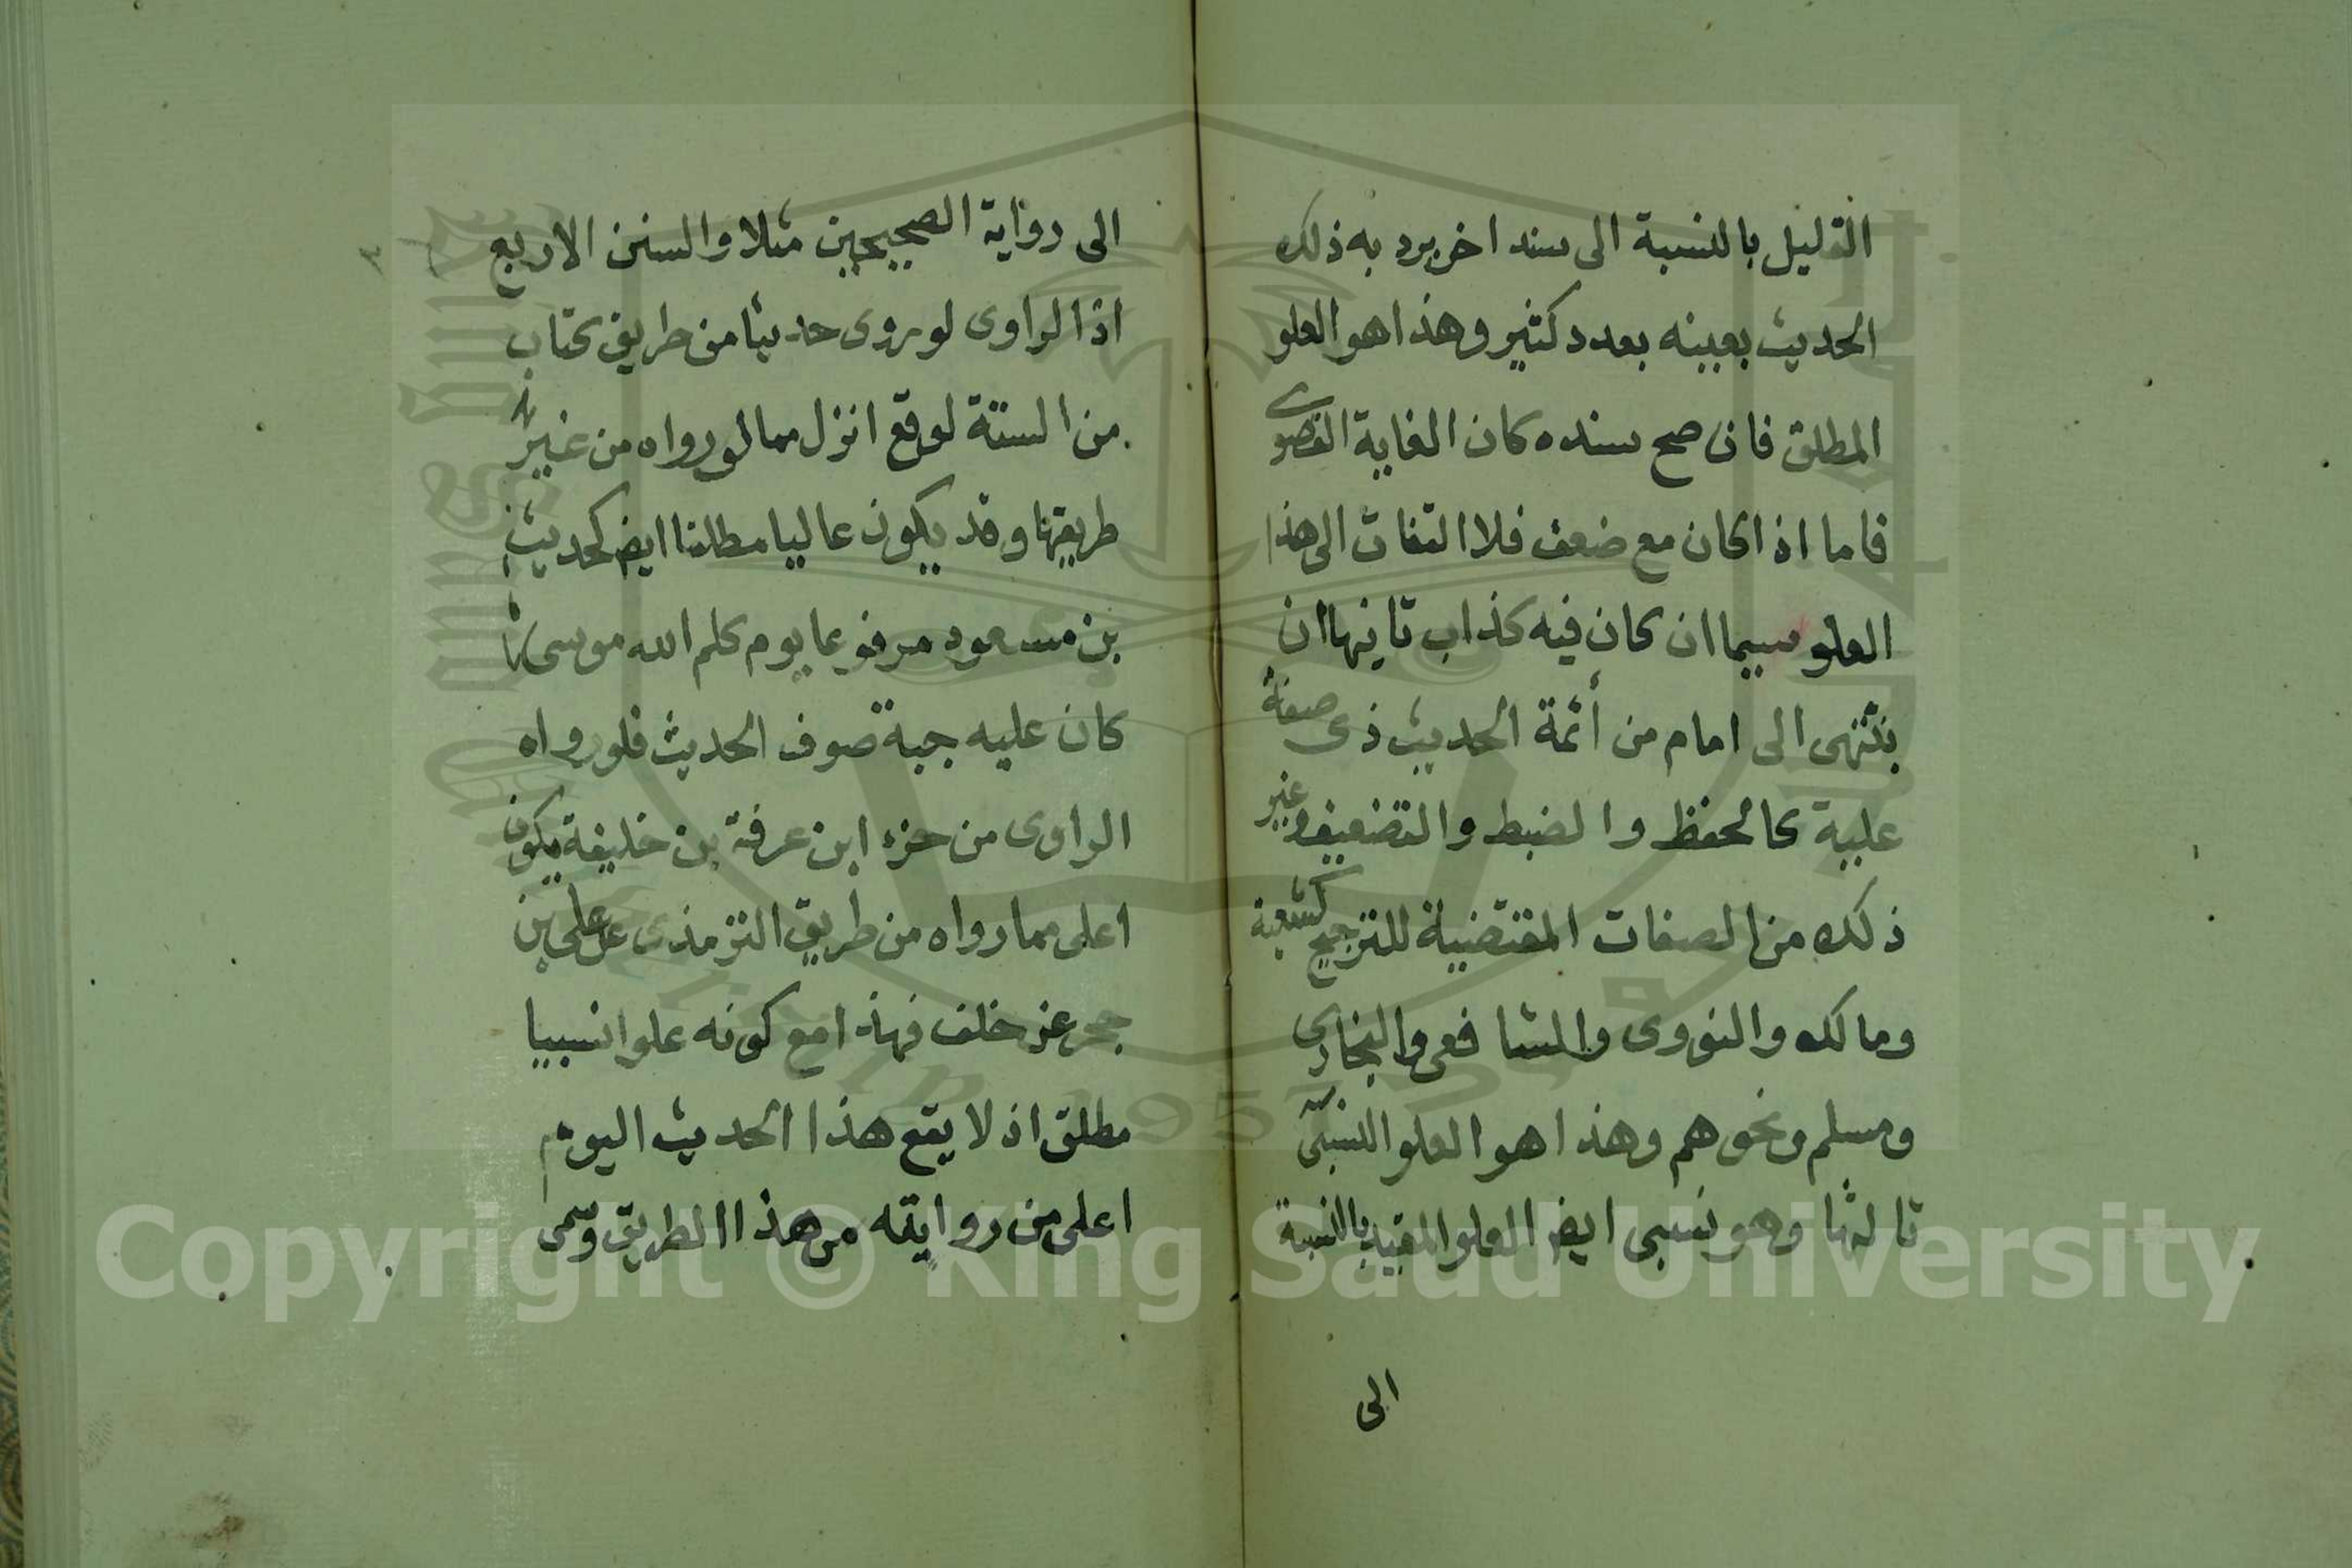 القليل بالنسبة الى سند اخر يرد به ذلك
الحديث بعينه بعدد كثير وهذا هو العلو
المطلق فان صح سنده كان الغاية القصوى
فاما اذا كان مع ضعف فلا التفات الى هذا
العلو سيما ان كان فيه كذاب ثانيها ان
ينتهى الى امام من أئمة الحديث ذى صفة
علية كالحفظ والضبط والتضعيف وغير
ذلك من الصفات المقتضية للترجيح كشعبة
ومالك والنووى والشافعى والبخارى
ومسلم ونحوهم وهذا هو العلو النسبى
ثالثها وهو نسبى ايض العلو المقيد بالنسبة
الى
الى رواية الصحيحين مثلا والسنن الاربع
اذا الراوى لو روى حديثا من طريق كتاب
من الستة لوقع انزل مما لو رواه من غير
طريقها وقد يكون عاليا مطلقا ايض كحديث
بن مسعود مرفوعا يوم كلم الله موسى
كان عليه جبة صوف الحديث فلو رواه
الراوى من جزء ابن عرفة بن خليفة يكون
اعلى مما رواه من طريق الترمذى عن على بن
حجر عن خلف فهذا مع كونه علوا نسبيا
مطلق اذ لا يقع هذا الحديث اليوم
اعلى من روايته من هذا الطريق وسمى
Copyright © King Saud University
1957